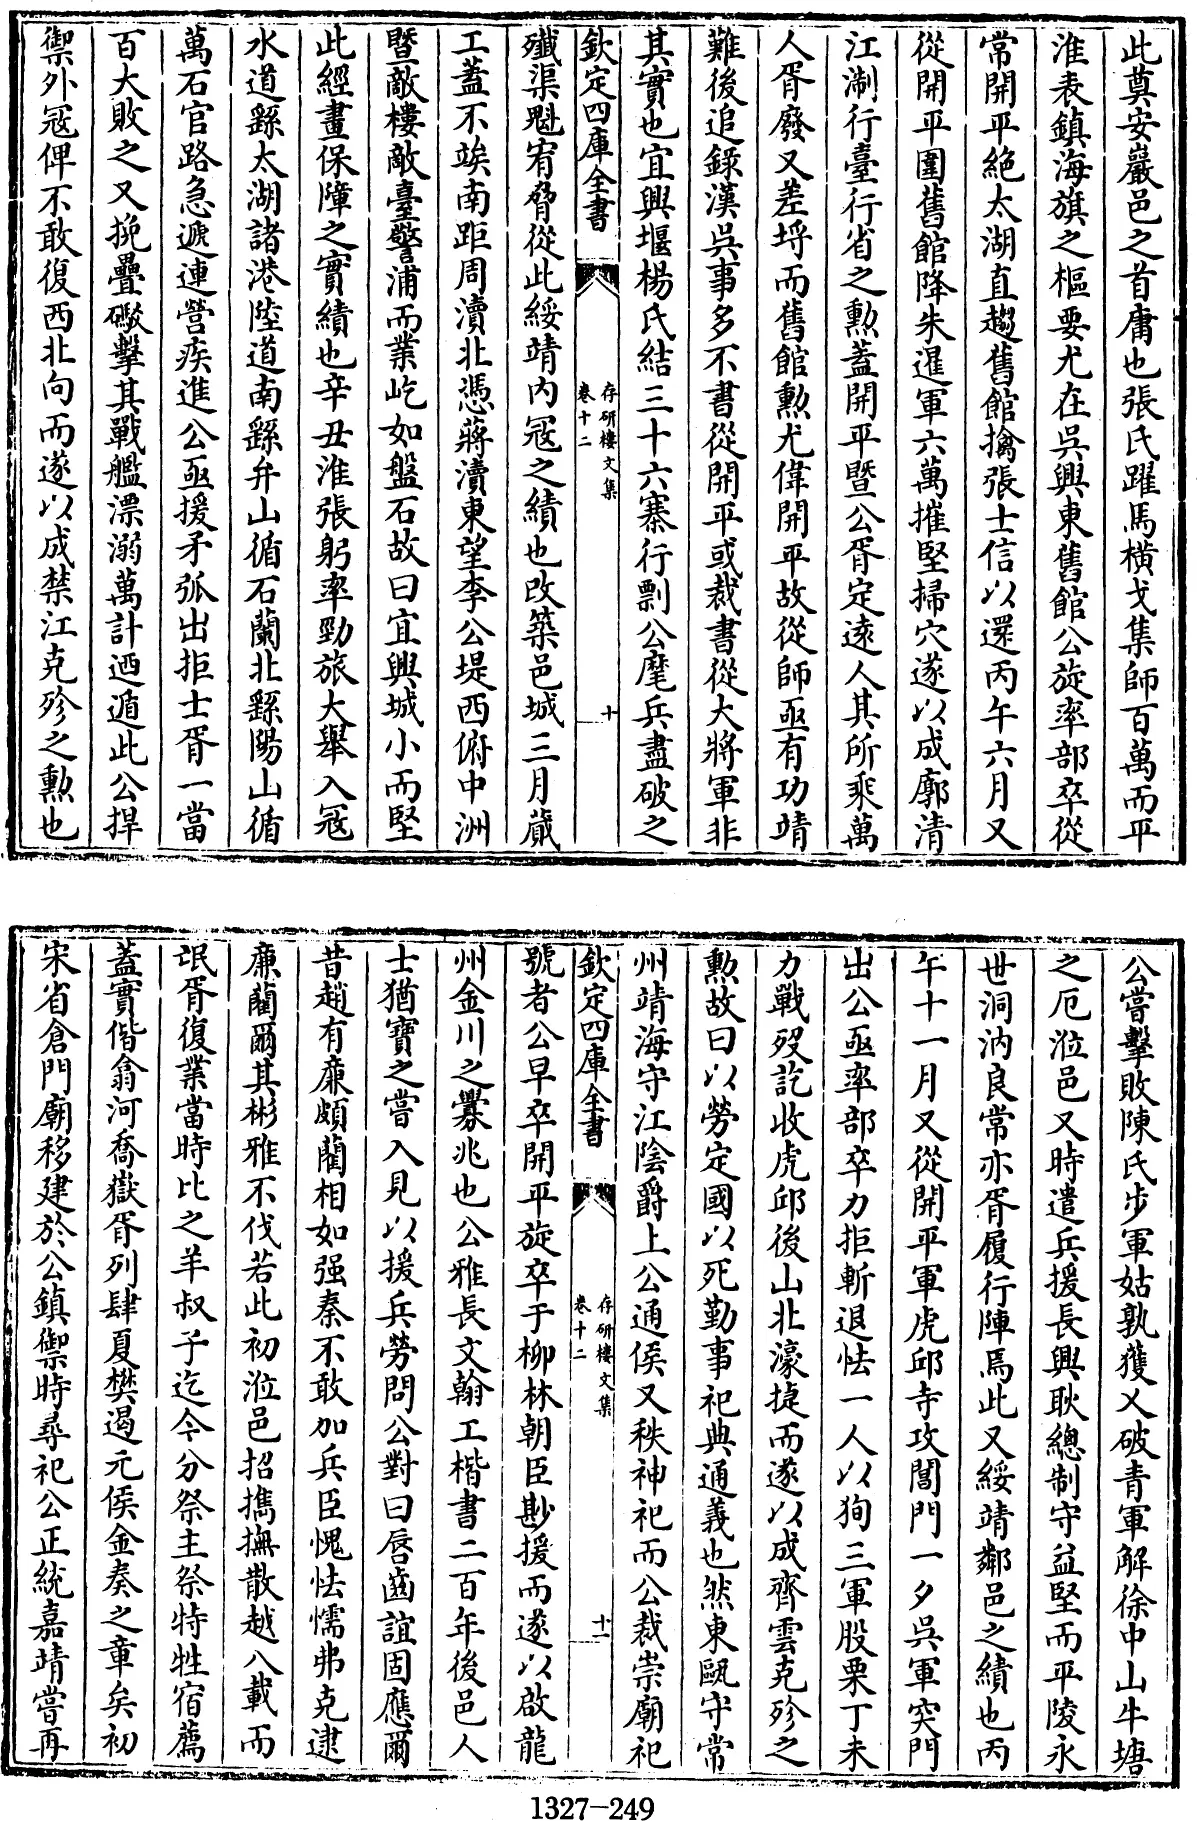 此奠安巖邑之首庸也張氏躍馬橫戈集師百萬而平
淮表鎮海旗之樞要尤在吳興東舊館公旋率部卒從
常開平絶太湖直趨舊館擒張士信以還丙午六月又
從開平圍舊館降朱暹軍六萬摧堅掃穴遂以成廓清
江淛行臺行省之勲蓋開平暨公胥定遠人其所乘萬
人胥廢又差埓而舊館勲尤偉開平故從師亟有功靖
難後追錄漢吳事多不書從開平或裁書從大將軍非
其實也宜興堰楊氏結三十六寨行剽公麾兵盡破之
欽定四庫全書
存研樓文集
卷十二
十
殲渠魁宥脅從此綏靖内冦之績也改築邑城三月蕆
工蓋不竢南距周瀆北憑蔣瀆東望李公堤西俯中洲
暨敵樓敵臺警浦而業屹如盤石故曰宜興城小而堅
此經畫保障之實績也辛丑淮張躬率勁旅大舉入冦
水道繇太湖諸港陸道南繇弁山循石蘭北繇陽山循
萬石官路急遞連營疾進公亟援矛弧出拒士胥一當
百大敗之又挽疊礟擊其戰艦漂溺萬計迺遁此公捍
禦外冦俾不敢復西北向而遂以成禁江克殄之勲也
公嘗擊敗陳氏步軍姑孰獲乂破青軍解徐中山牛塘
之厄涖邑又時遣兵援長興耿總制守益堅而平陵永
世洞汭良常亦胥履行陣焉此又綏靖鄰邑之績也丙
午十一月又從開平軍虎邱寺攻閶門一夕吳軍突門
出公亟率部卒力拒斬退怯一人以狥三軍股栗丁未
力戰歿訖收虎邱後山北濠捷而遂以成齊雲克殄之
勲故曰以勞定國以死勤事祀典通義也然東甌守常
州靖海守江陰爵上公通侯又秩神祀而公裁崇廟祀
欽定四庫全書
存研樓文集
卷十二
十一
號者公早卒開平旋卒于柳林朝臣尠援而遂以啟龍
州金川之釁兆也公雅長文翰工楷書二百年後邑人
士猶寶之嘗入見以援兵勞問公對曰唇齒誼固應爾
昔趙有廉頗藺相如强秦不敢加兵臣愧怯懦弗克逮
廉藺爾其彬雅不伐若此初涖邑招擕撫散越八載而
氓胥復業當時比之羊叔子迄今分祭主祭特牲宿薦
蓋實偕翕河喬嶽胥列肆夏樊遏元侯金奏之章矣初
宋省倉門廟移建於公鎮禦時尋祀公正統嘉靖嘗再
1327-249